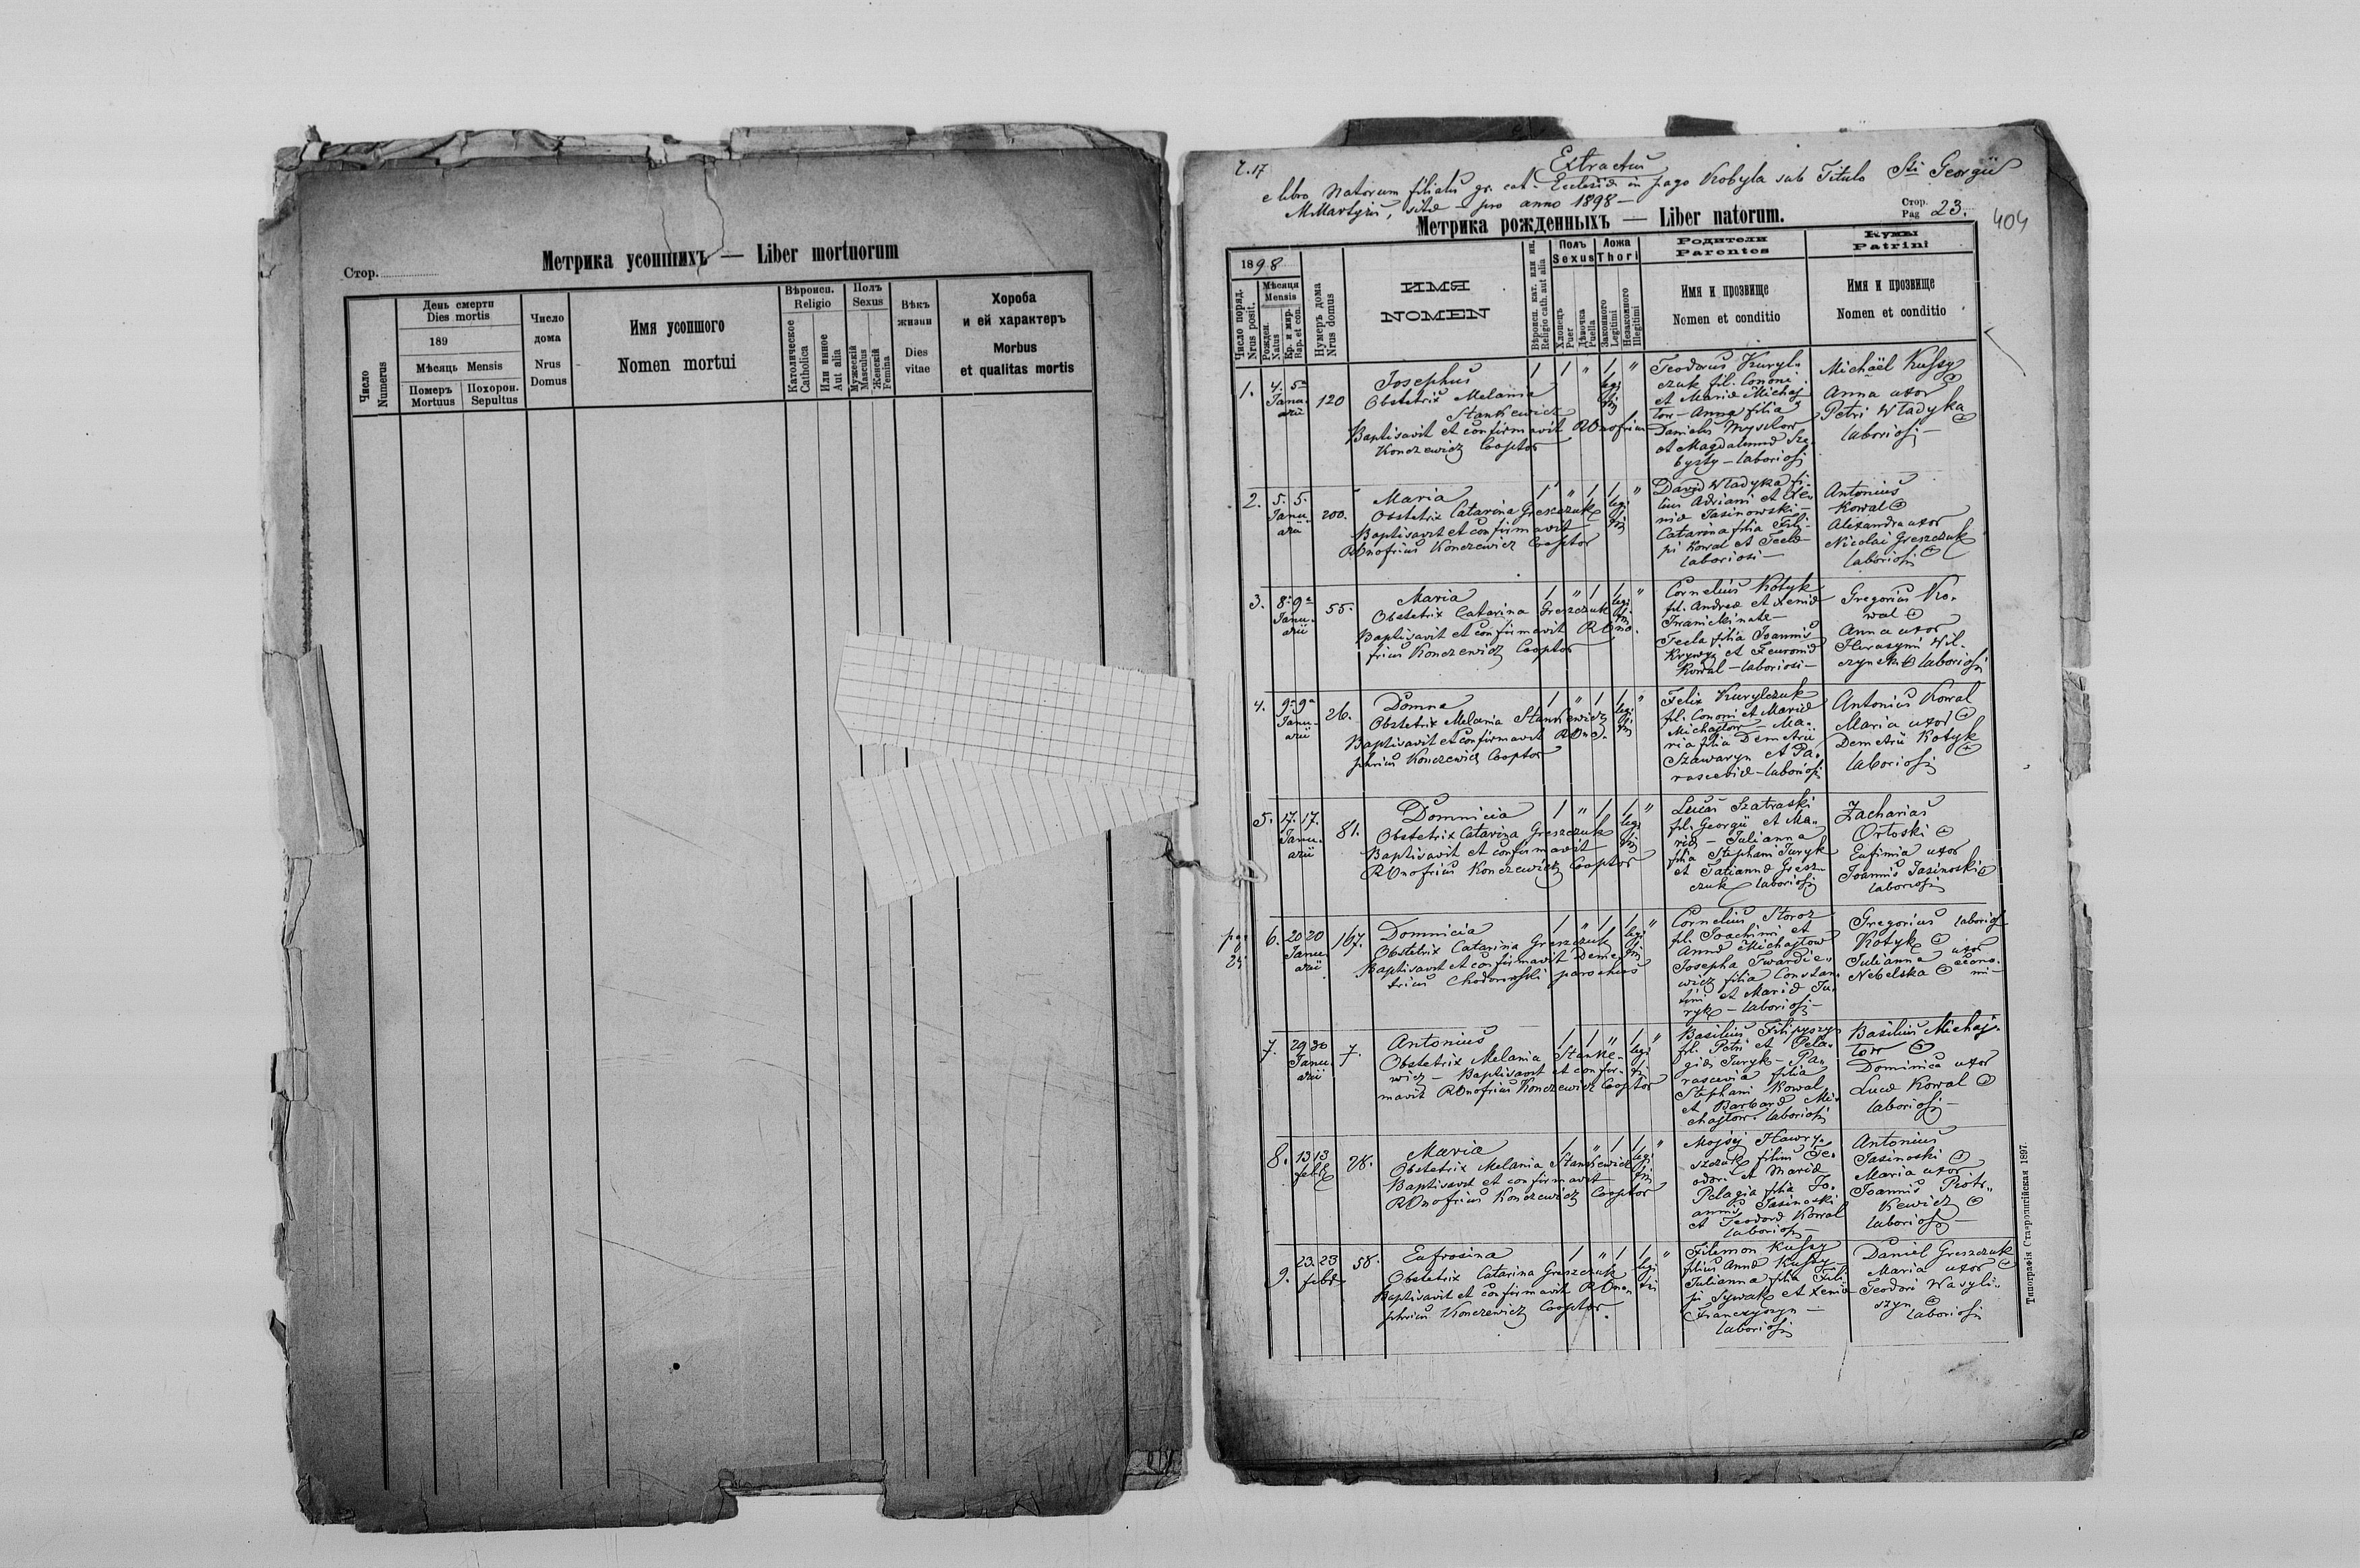 Метрика усопшихъ — Liber mortuorum
Стор.
Число
Numerus
День смерти
Dies mortis
189
Мѣсяць Mensis
Померъ
Mortuus
Похорон.
Sepultus
Число
дома
Nrus
Domus
Имя усопшого
Nomen mortui
Вѣроисп.
Religio
Католическое
Catholica
Или инное
Aut alia
Полъ
Sexus
Мужескій
Masculus
Женскій
Femina
Вѣкъ
жизни
Dies
vitae
Хороба
и ей характеръ
Morbus
et qualitas mortis
Extractus
e libro Natorum filialis gr. cat. Ecclesiæ in pago Kobyla sub Titulo Sti Georgii
MMartyris, sitæ - pro anno 1898 —
Метрика рожденныхъ — Liber natorum.
Стор.
Pag 23.
404
1898
Число поряд.
Nrus posit.
Мѣсяця
Mensis
Рожден.
Natus
Кр. и мѵр.
Bap. et con.
Нумеръ дома
Nrus domus
ИМЯ
NOMEN
Вѣроисп. кат. или ин.
Religio cath. aut alia
Полъ
Sexus
Хлопецъ
Puer
Дѣвочка
Puella
Ложа
Thori
Законного
Legitimi
Незаконного
Illegitimi
Родители
Parentes
Имя и прозвище
Nomen et conditio
Кумы
Patrini
Имя и прозвище
Nomen et conditio
1. 4. 5a
Janu-
arii
120
Josephus
Obstetrix Melania
Stankewicz
Baptisavit et confirmavit ROnofrius
Konczewicz Cooptor
1 1 " 1 "
legi
ti
Teodorus Kuryl-
czuk fil. Cononi
et Mariæ Michaj
low - Anna filia
Danielis Myskow
et Magdalenæ
laboriosi
Michaël Kussy
Anna uxor
Petri Wladyka
laboriosi —
2. 5. 5.
Janu-
arii
200.
Maria
Obstetrix Catarina Greszczuk
Baptisavit et confirmavit
ROnofrius Konczewicz Cooptor
1 " 1 1 "
legi
ti
David Wladyka fi-
lius Adriani et Xe-
niæ Jasinowski —
Catarina filia Fili-
pi Kowal et Teclæ
laboriosi —
Antonius
Kowal
Alexandra uxor
Nicolai Greszczuk
laboriosi
3. 8. 9a
Janu-
arii
55.
Maria
Obstetrix Catarina Greszczuk
Baptisavit et confirmavit ROno-
frius Konczewicz Cooptor
1 " 1 1 "
legi
ti
Cornelius Kotyk
fil. Andreæ et Xeniæ
Iwanicki natæ —
Tecla filia Joannis
Krywyj et Feuroniæ
Kowal — laboriosi —
Gregorius Ko-
wal
Anna uxor
Harasymi Wil-
czynski laboriosi
4. 9a 9a
Janu-
arii
26.
Domna
Obstetrix Melania Stankewicz
Baptisavit et confirmavit ROno-
phrius Konczewicz Cooptor
1 " 1 1 "
legi
ti
Felix Kurylczuk
fil. Cononi et Mariæ
Michajlow — Ma-
ria filia Demetrii
Szawaryn et Pa-
rasceviæ — laboriosi
Antonius Kowal
Maria uxor
Demetrii Kotyk
laboriosi
5. 17. 17.
Janu-
arii
81.
Domnicia
Obstetrix Catarina Greszczuk
Baptisavit et confirmavit
ROnofrius Konczewicz Cooptor
1 " 1 1 "
legi
ti
Lucas Szatraski
fil. Georgii et Ma-
riæ — Julianna
filia Stephani Juryk
et Tatiannæ Gresz-
czuk laboriosi
Zacharias
Ortoski
Eufimia uxor
Joannis Jasinoski
laboriosi
pag
25
6. 20 20
Janu-
arii
167.
Domnicia
Obstetrix Catarina Greszczuk
Baptisavit et confirmavit Deme-
trius Chodorowski parochus
1 " 1 1 "
legi
ti
Cornelius Storoz
fil. Joachimi et
Annæ Michajlow
Josepha Twardie-
wicz filia Constan-
tini et Mariæ Ju-
ryk — laboriosi —
Gregorius laboriosi
Kotyk
Julianna uxor
Nebelska œcono-
mi —
7. 29 30
Janu-
arii
7.
Antonius
Obstetrix Melania Stanke-
wicz — Baptisavit et confir-
mavit ROnofrius Konczewicz Cooptor
1 1 " 1 "
legi
ti
Basilius Filipyszyn
fil. Petri et Pela-
giæ Juryk — Pa-
rascevia filia
Stephani Kowal
et Barbaræ Mi-
chajlow. laboriosi
Basilius Michaj-
low
Dominica uxor
Lucæ Kowal
laboriosi —
8. 13 13
feb
28.
Maria
Obstetrix Melania Stankewicz
Baptisavit et confirmavit
ROnofrius Konczewicz Cooptor
1 " 1 1 "
legi
ti
Mojsej Hawry-
szczuk filius Te-
odori et Mariæ
Pelagia filia Jo-
annis Jasinoski
et Teodoræ Kowal
laboriosi —
Antonius
Jasinoski
Maria uxor
Joannis Piotr-
kewicz
laboriosi —
9. 23. 23
febr
58.
Eufrosina
Obstetrix Catarina Greszczuk
Baptisavit et confirmavit ROno-
phrius Konczewicz Cooptor.
1 " 1 1 "
legi
ti
Filemon Kussy
filius Annæ Kussy —
Julianna filia Fili-
pi Sywak et Xeniæ
Franczyszyn —
laboriosi
Daniel Greszczuk
Maria uxor
Teodori Wasyli-
szyn
laboriosi
Типографія Ставропигійская 1897.